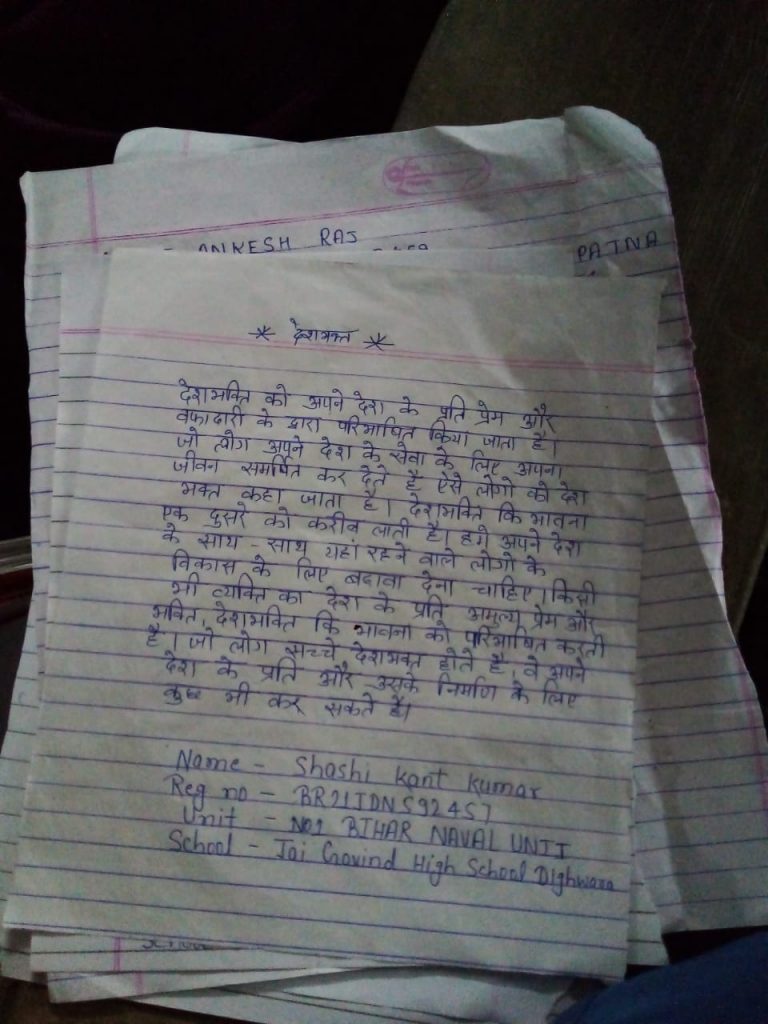 ANIKESH RAJ
PATNA
* देशभक्त *
देशभक्ति को अपने देश के प्रति प्रेम और
वफादारी के द्वारा परिभाषित किया जाता है।
जो लोग अपने देश के सेवा के लिए अपना
जीवन समर्पित कर देते है ऐसे लोगो को देश
भक्त कहा जाता है। देशभक्ति कि भावना
एक दुसरे को करीब लाती है। हमे अपने देश
के साथ - साथ यहां रहने वाले लोगो के
विकास के लिए बढावा देना चाहिए। किसी
भी व्यक्ति का देश के प्रति अमुल्य प्रेम और
भक्ति, देशभक्ति कि भावना को परिभाषित करती
है। जो लोग सच्चे देशभक्त होते है, वे अपने
देश के प्रति और उसके निर्माण के लिए
कुछ भी कर सकते है।
Name - Shashi Kant Kumar
Reg no - BR21JDN592457
Unit - NO1 BIHAR NAVAL UNIT
School - Jai Govind High School Dighwara